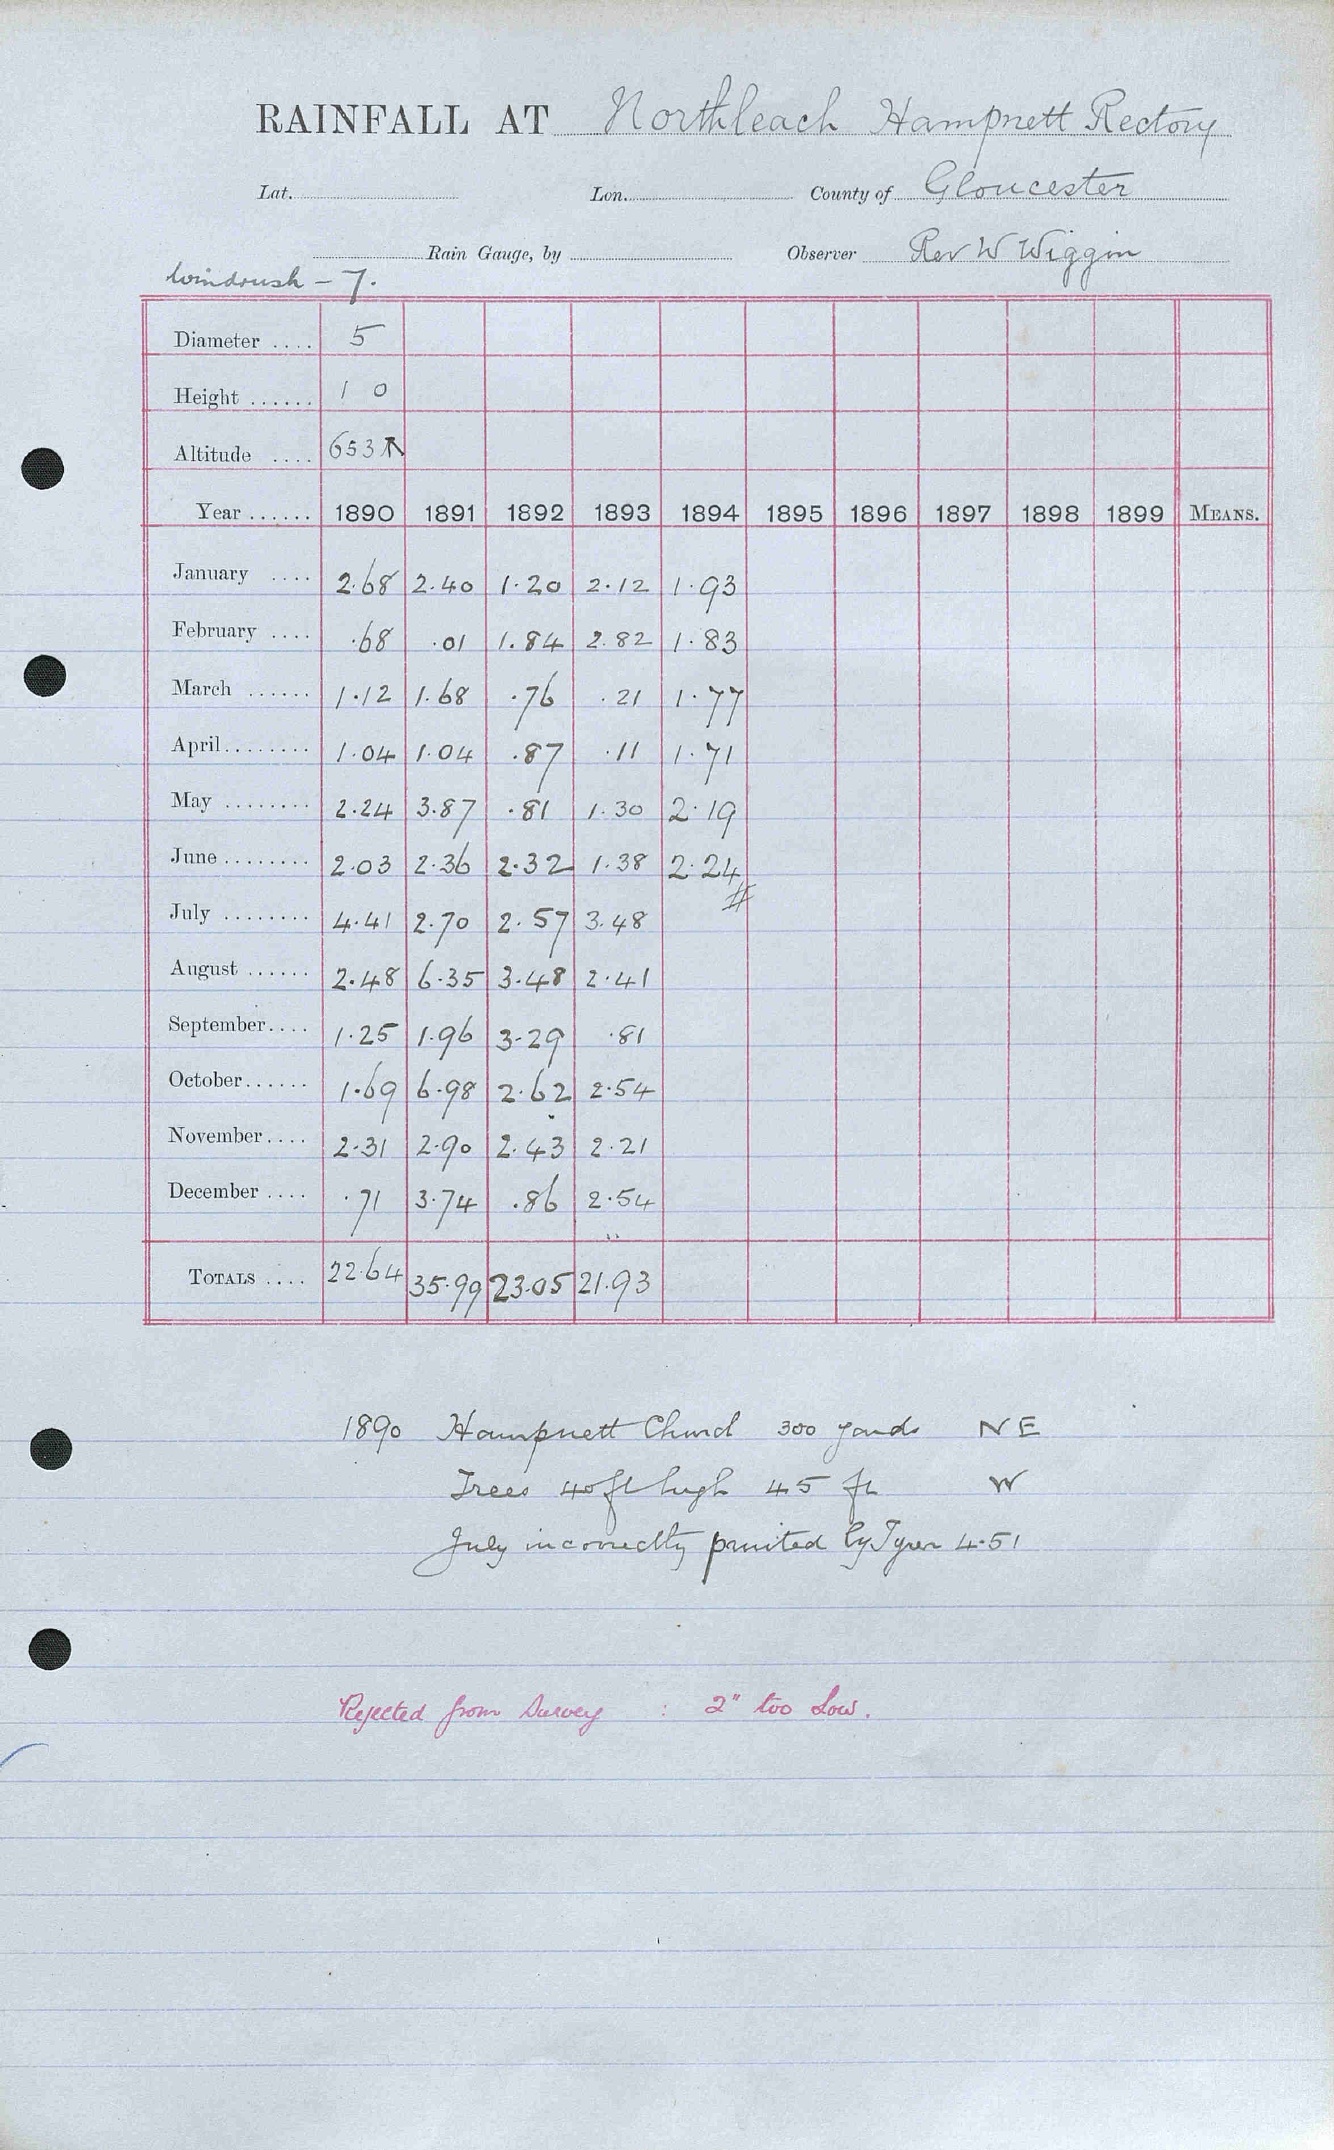 RAINFALL AT Northleach Hampnett Rectory
Lat. Lon. County of Gloucester
Rain Gauge, by Observer Rev W Wiggin
Windrush – 7.
Diameter .... 5
Height ...... 1 0
Altitude .... 653
Year ...... 1890 1891 1892 1893 1894 1895 1896 1897 1898 1899 MEANS.
January .... 2.68 2.40 1.20 2.12 1.93
February .... .68 .01 1.84 2.82 1.83
March ...... 1.12 1.68 .76 .21 1.77
April ........ 1.04 1.04 .87 .11 1.71
May ........ 2.24 3.87 .81 1.30 2.19
June ........ 2.03 2.36 2.32 1.38 2.24
July ........ 4.41 2.70 2.57 3.48
August ...... 2.48 6.35 3.48 2.41
September.... 1.25 1.96 3.29 .81
October...... 1.69 6.98 2.62 2.54
November.... 2.31 2.90 2.43 2.21
December .... .71 3.74 .86 2.54
TOTALS .... 22.64 35.99 23.05 21.93
1890 Hampnett Church 300 yards NE
Trees 40 ft high 45 ft W
July incorrectly printed by Tyrer 4.51
Rejected from Survey : 2" too low.